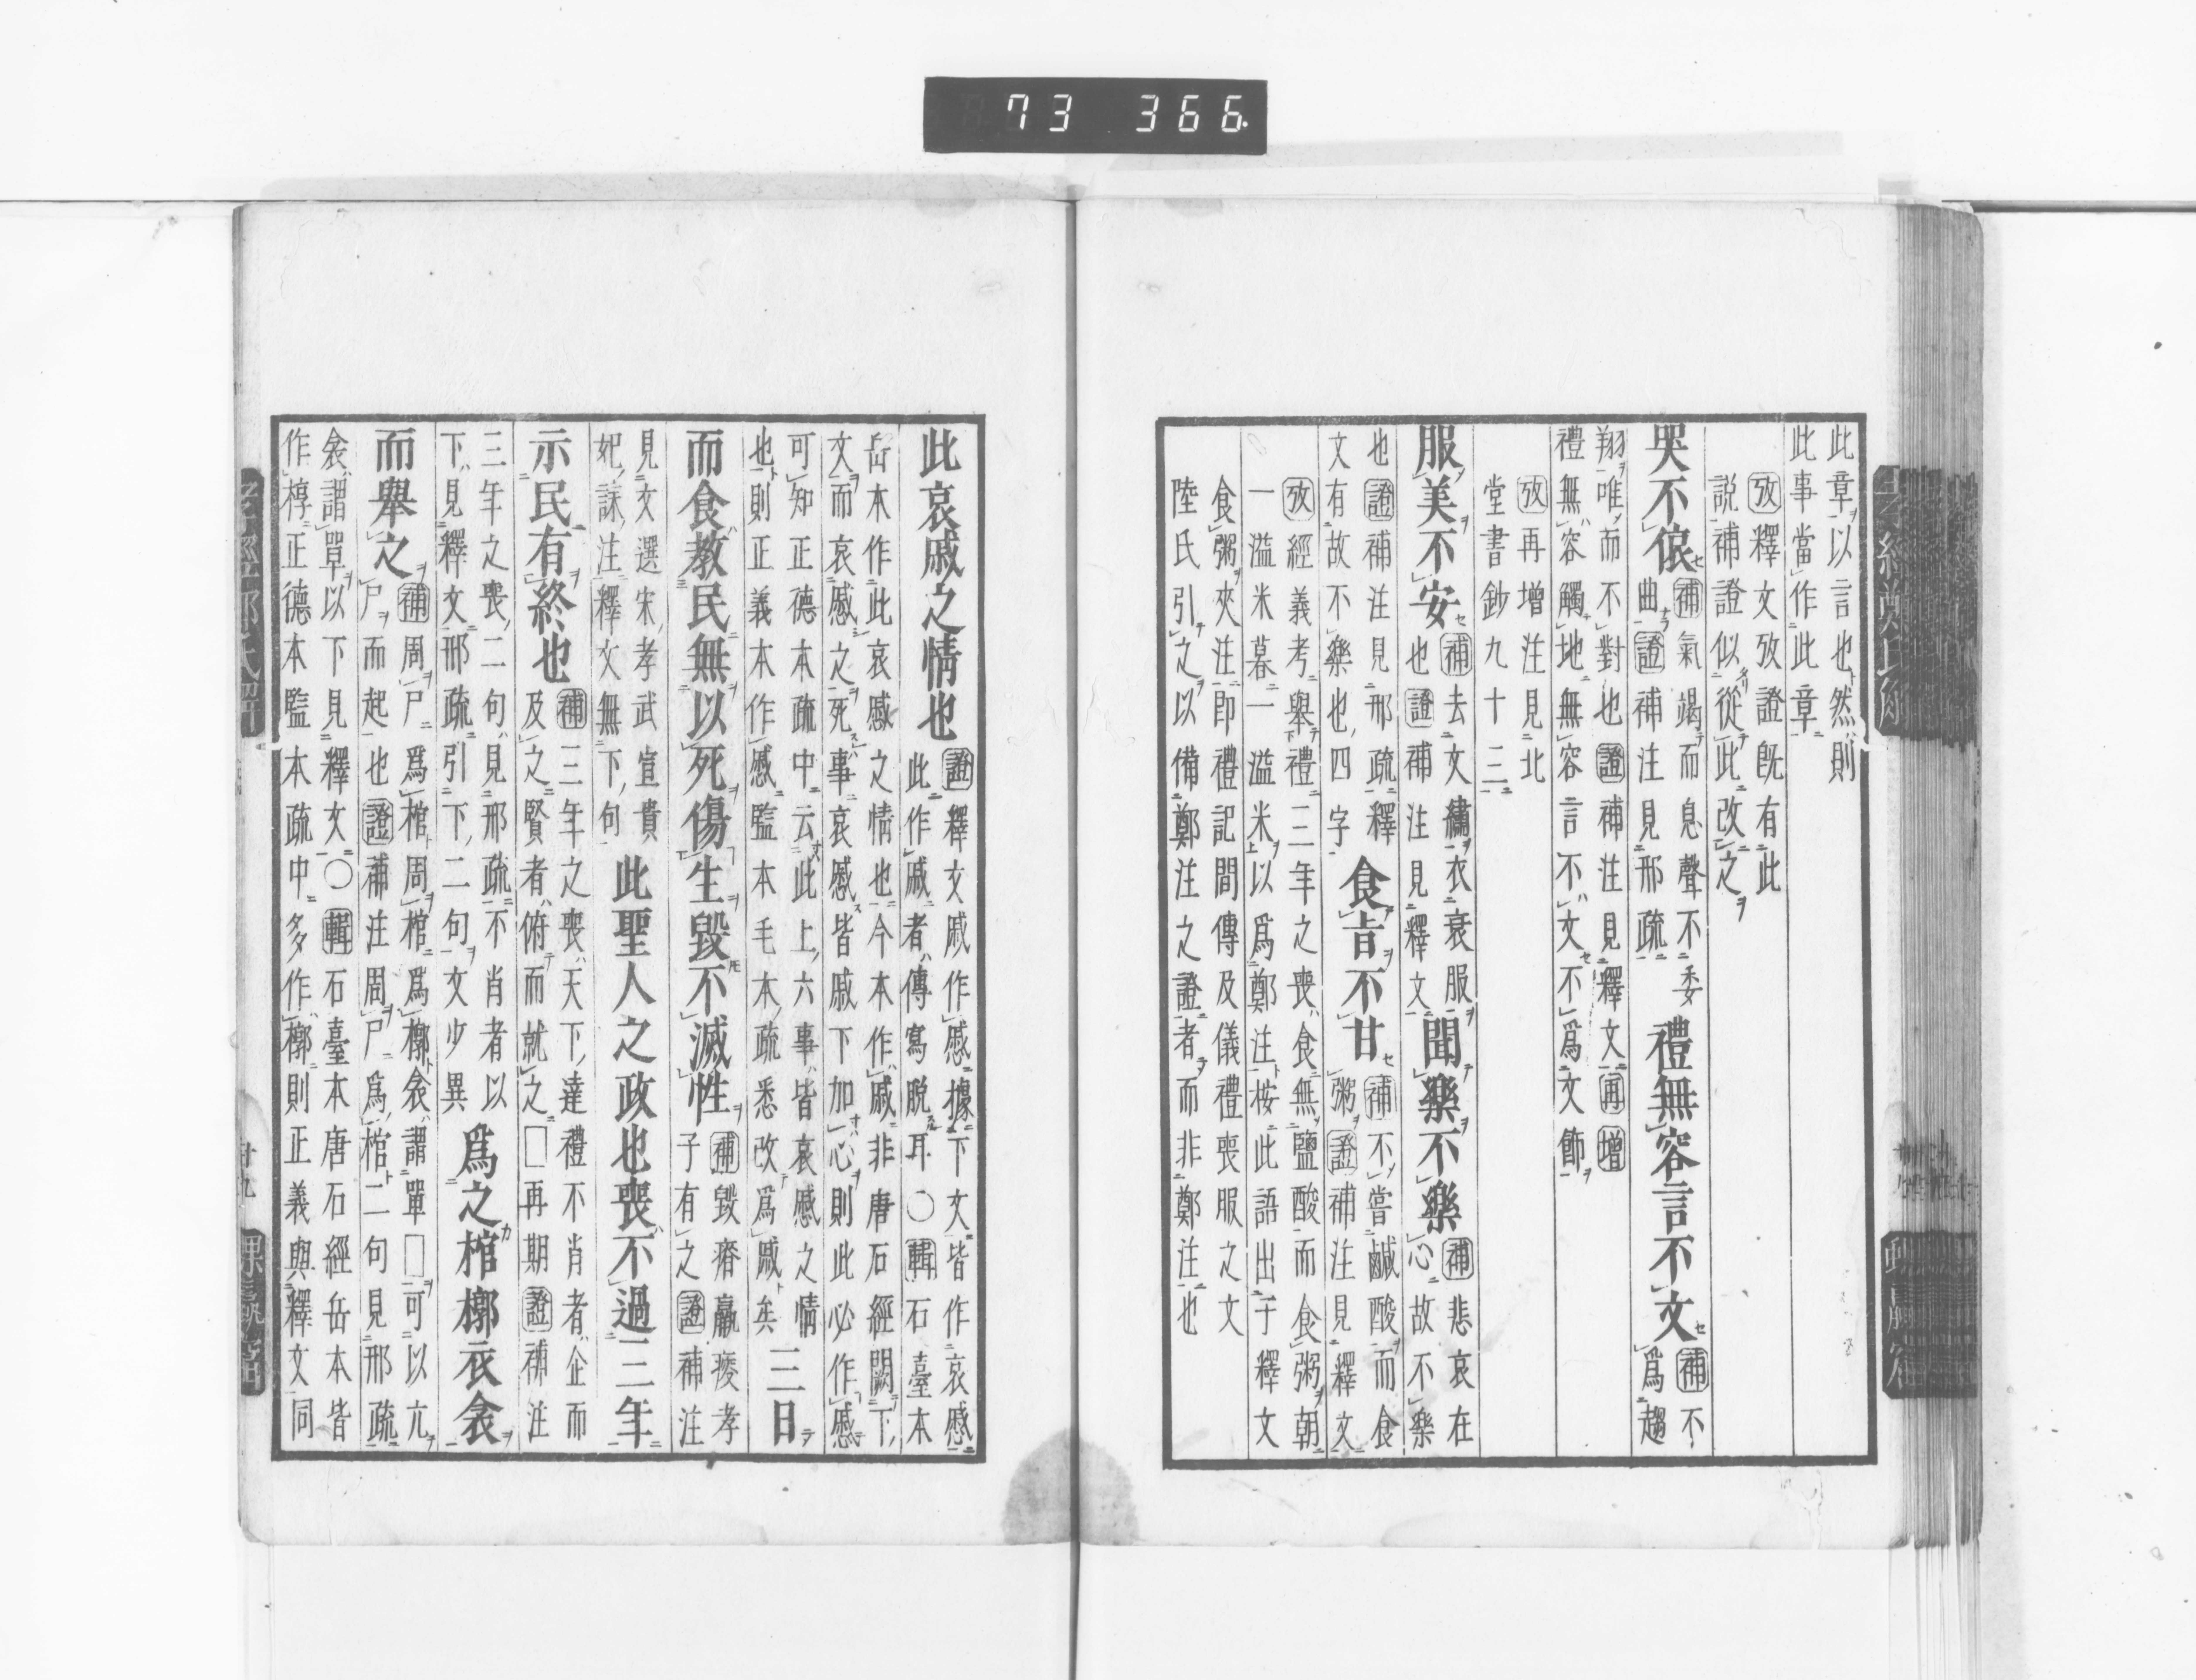 73 366
此章以言也然則
此事當作此章
攷釋文攷證旣有此
説補證似從此改之
哭不偯
補氣竭而息聲不委
曲證補注見邢疏
禮無容言不文
補不爲趨
翔唯而不對也證補注見釋文再增
禮無容觸地無容言不文不爲文飾
攷再增注見北
堂書鈔九十三
服美不安
補去文繡衣衰服
也證補注見釋文
聞樂不樂
補悲哀在
心故不樂
也證補注見邢疏釋
文有故不樂也四字
食旨不甘
補不嘗鹹酸而食
粥證補注見釋文
攷經義考舉禮三年之喪食無鹽酸而食粥朝
一溢米暮一溢米以爲鄭注桉此語出于釋文
食粥夾注即禮記間傳及儀禮喪服之文
陸氏引之以備鄭注之證者而非鄭注也
此哀戚之情也
證釋文戚作慼據下文皆作哀慼
此作戚者傳寫脱耳〇輯石臺本
岳本作此哀慼之情也今本作戚非唐石經闕下
文而哀慼之死事哀慼皆戚下加心則此必作慼
可知正德本疏中云此上六事皆哀慼之情
也則正義本作慼監本毛本疏悉改爲戚矣
三日
而食教民無以死傷生毀不滅性
補毀瘠羸瘦孝
子有之證補注
見文選宋孝武宣貴
妃誄注釋文無下句
此聖人之政也喪不過三年
示民有終也
補三年之喪天下達禮不肖者企而
及之賢者俯而就之□再期證補注
三年之喪二句見邢疏不肖者以
下見釋文邢疏引下二句文少異
爲之棺槨衣衾
而舉之
補周尸爲棺周棺爲槨衾謂單□可以亢
尸而起也證補注周尸爲棺二句見邢疏
衾謂單以下見釋文〇輯石臺本唐石經岳本皆
作椁正德本監本疏中多作槨則正義與釋文同
廿九